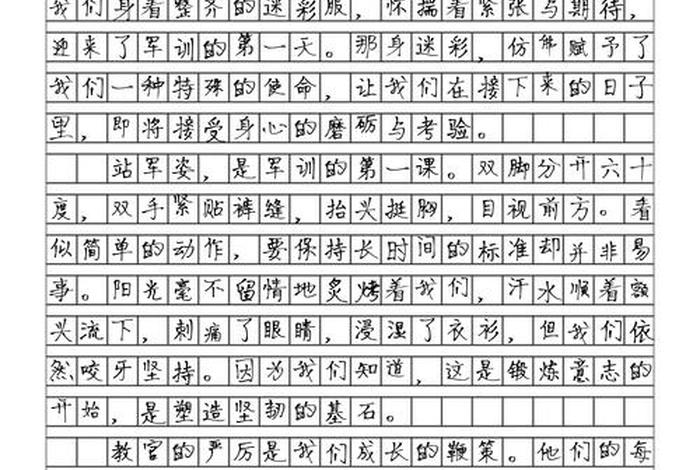 我们身着整齐的迷彩服，怀揣着紧张与期待，
迎来了军训的第一天。那身迷彩，仿佛赋予了
我们一种特殊的使命，让我们在接下来的日子
里，即将接受身心的磨砺与考验。
站军姿，是军训的第一课。双脚分开六十
度，双手紧贴裤缝，抬头挺胸，目视前方。看
似简单的动作，要保持长时间的标准却并非易
事。阳光毫不留情地炙烤着我们，汗水顺着额
头流下，刺痛了眼睛，浸湿了衣衫，但我们依
然咬牙坚持。因为我们知道，这是锻炼意志的
开始，是塑造坚韧的基石。
教官的严厉是我们成长的鞭策。他们的每